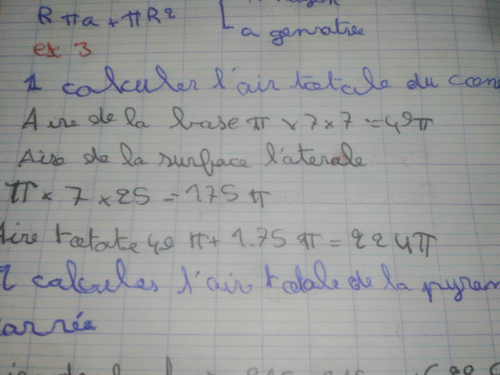 Rπa + πR²
a generatrice
ex 3
1 calculer l'air totale du cone
Aire de la base π x 7 x 7 = 49π
Aire de la surface l'aterale
π x 7 x 25 = 175 π
Aire totale 49 π + 175 π = 224π
2 calculer l'air totale de la pyram
carrée